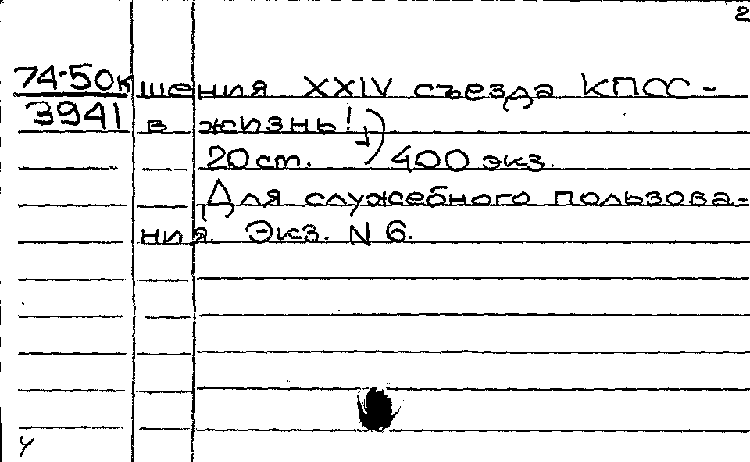 2
74-50к шения XXIV съезда КПСС -
3941 в жизнь!)
20 ст. 400 экз.
Для служебного пользова-
ния. Экз. N 6.